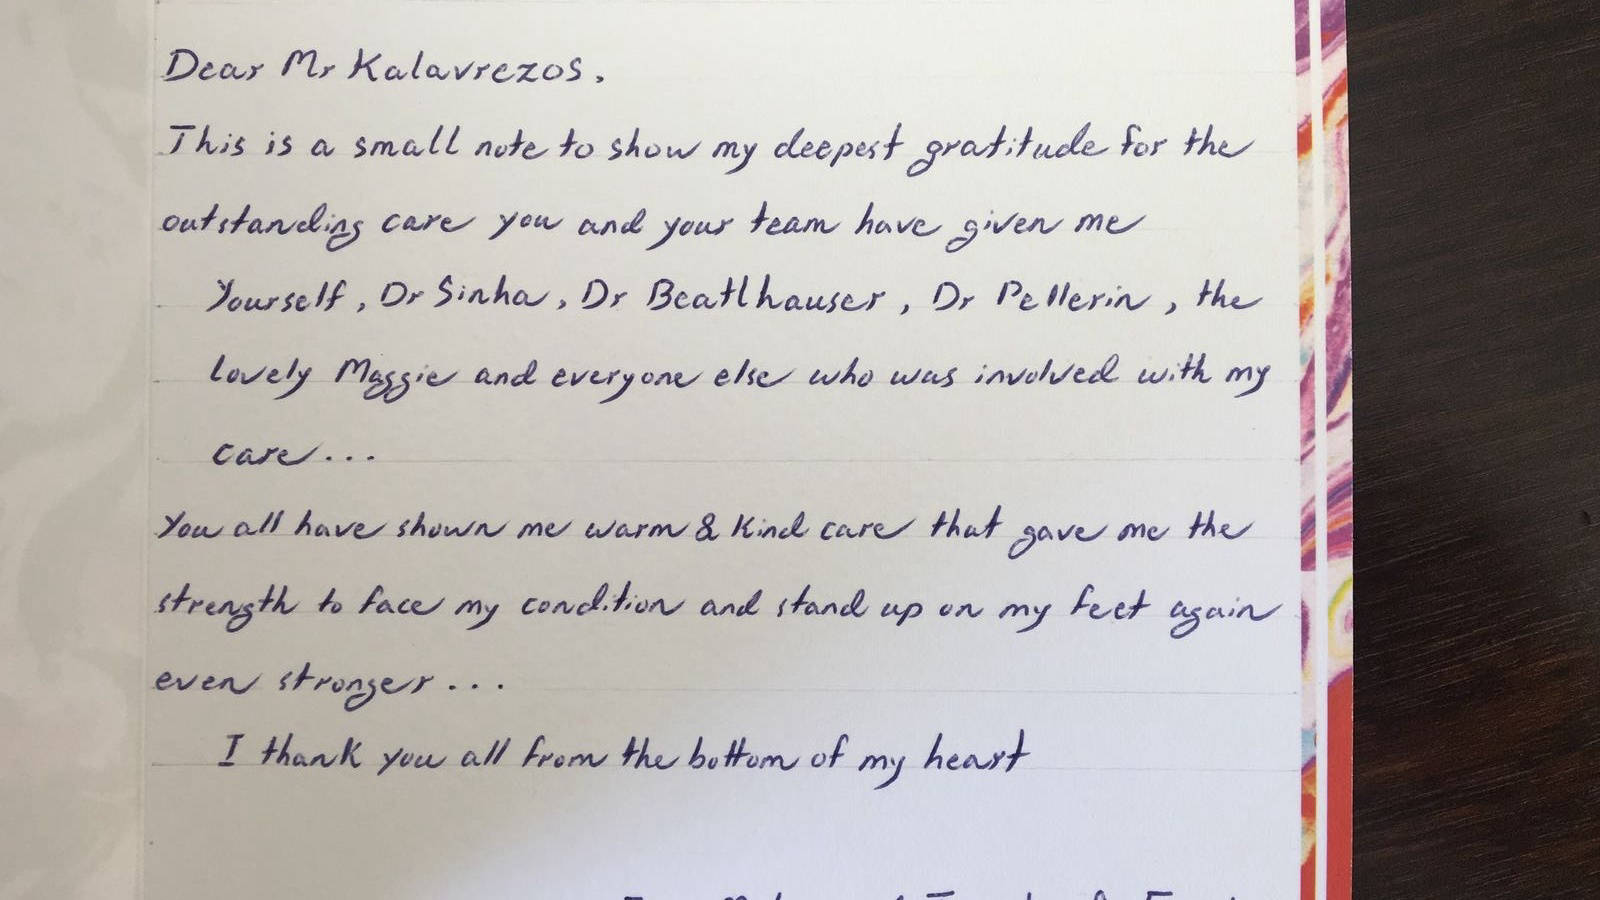 Dear Mr Kalavrezos,
This is a small note to show my deepest gratitude for the
outstanding care you and your team have given me
Yourself, Dr Sinha, Dr Beatlhauser, Dr Pellerin, the
lovely Maggie and everyone else who was involved with my
care...
You all have shown me warm & kind care that gave me the
strength to face my condition and stand up on my feet again
even stronger...
I thank you all from the bottom of my heart